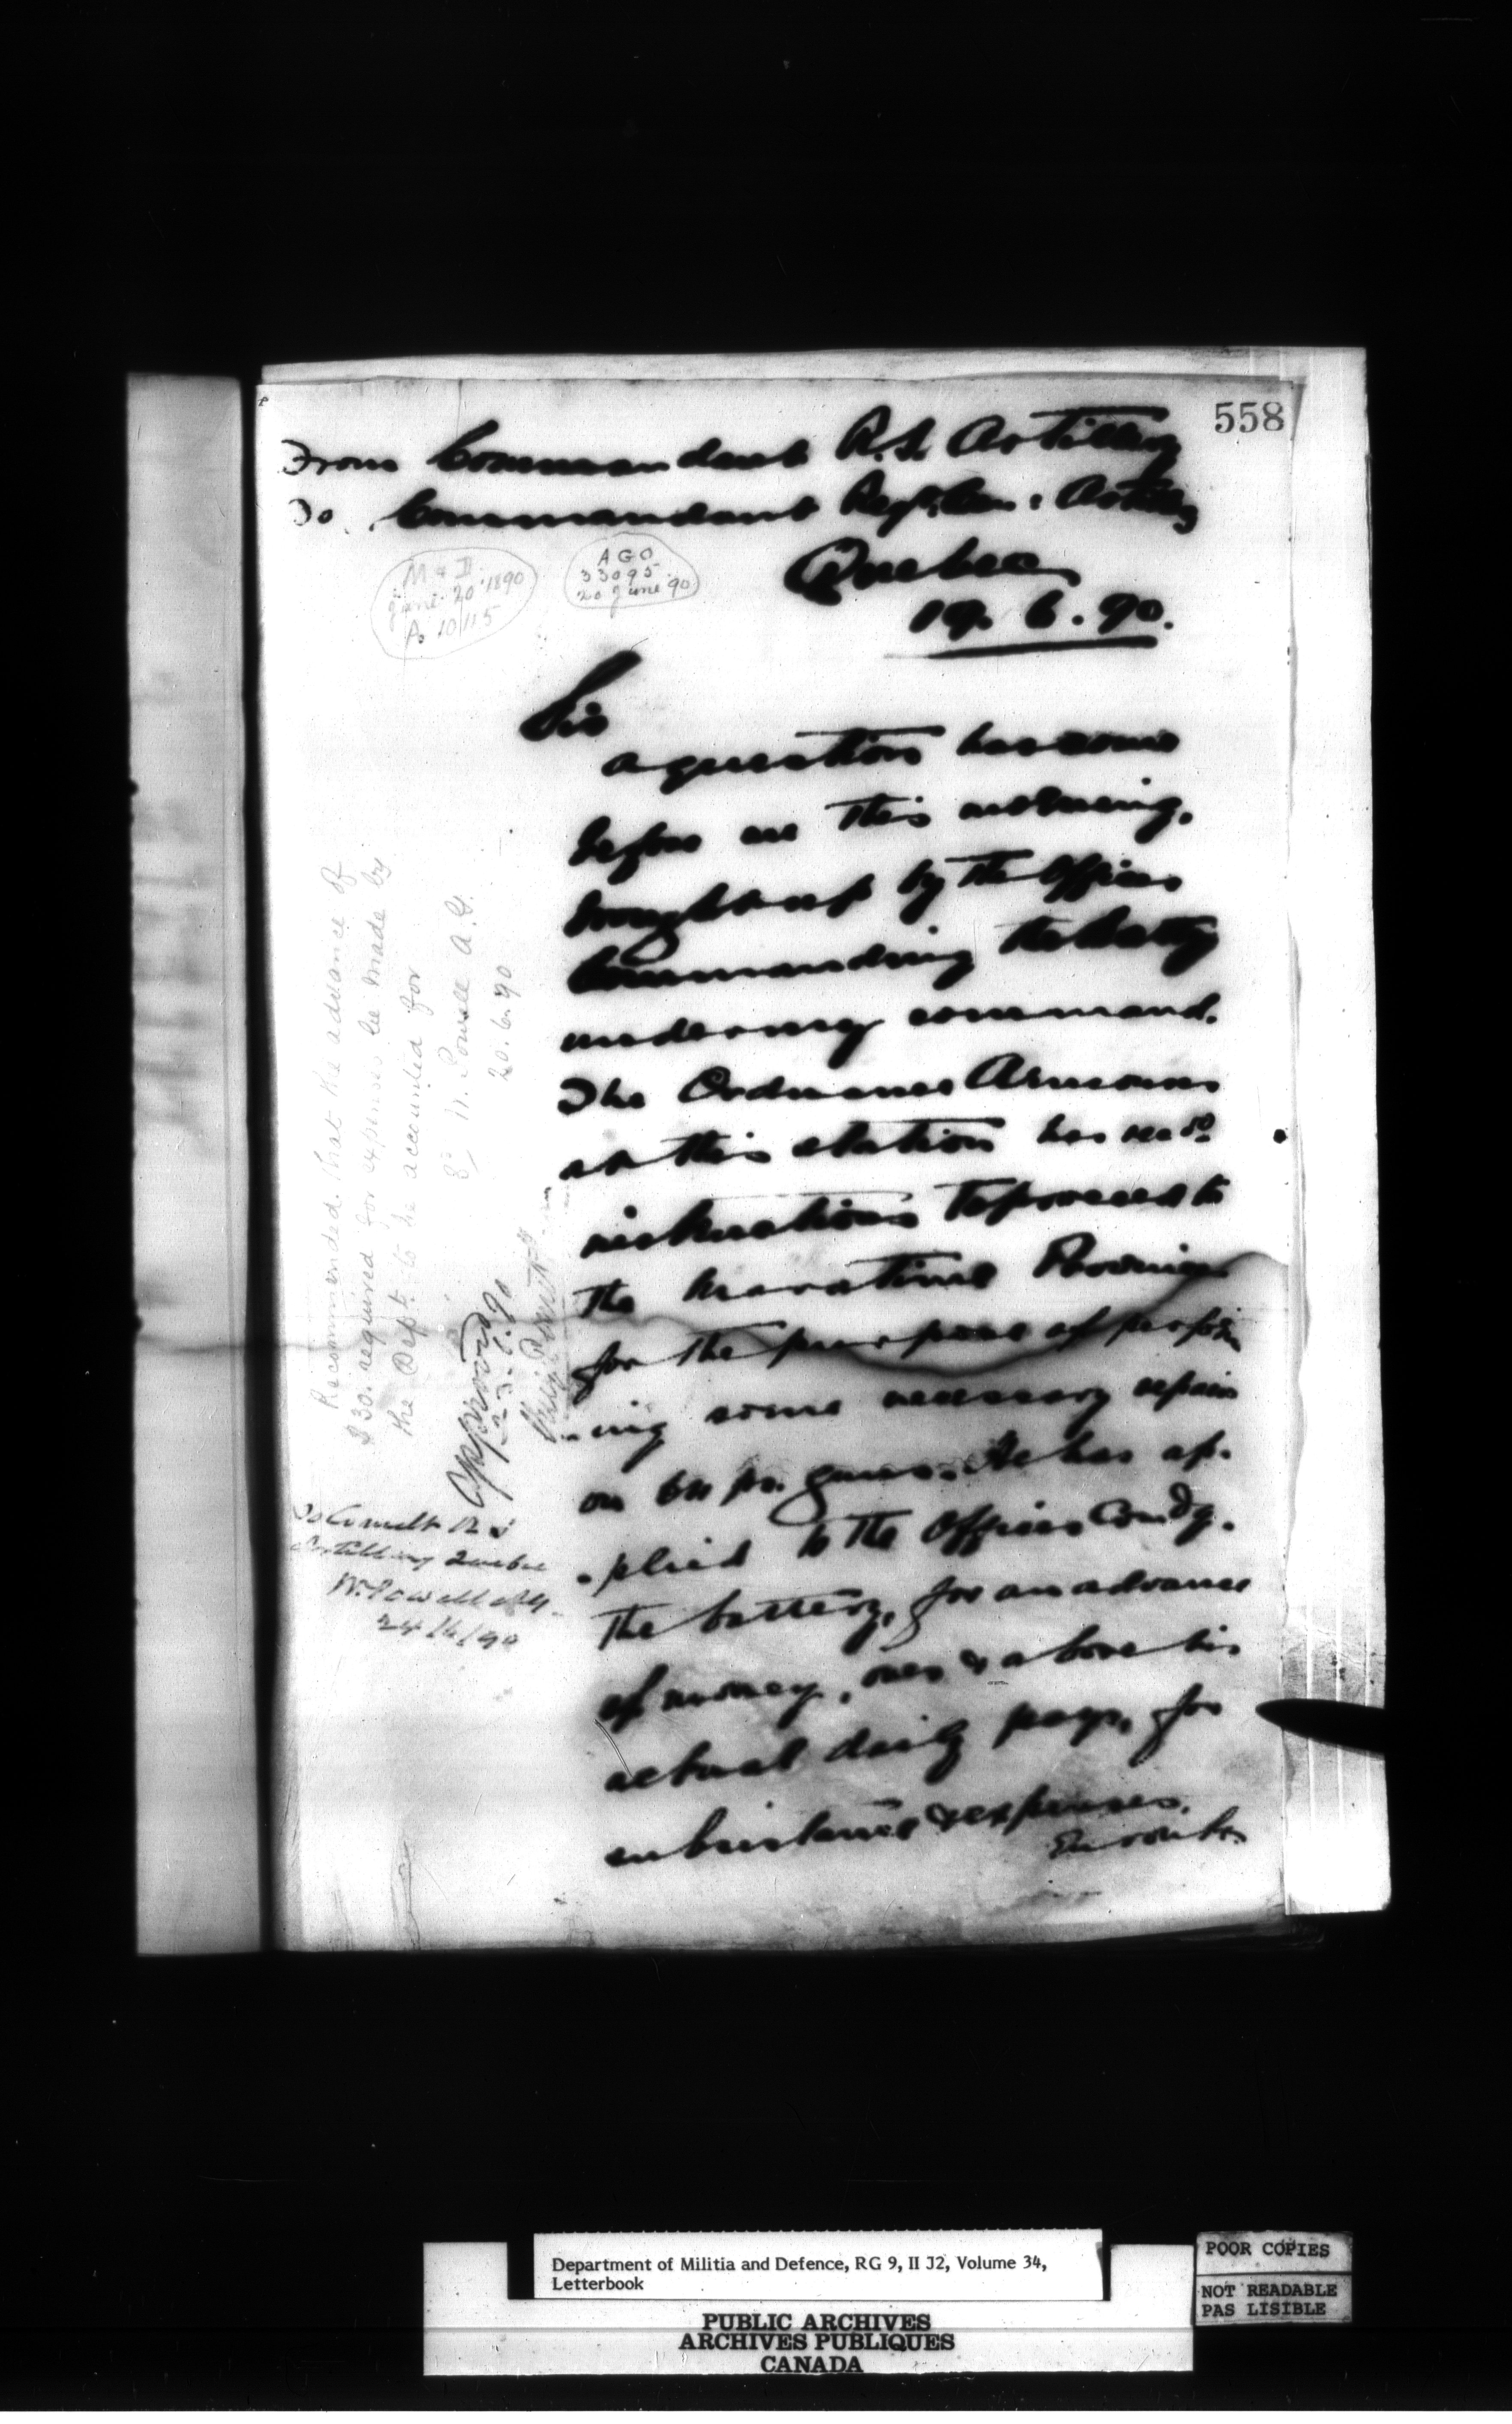 558
From Commandant R.S. Artillery
To Commandant Regt. Can. Artillery
Quebec
19. 6. 90.
M & D
June 20 1890
A 10115
AGO
33095
20 June 90
Sir
a question has come
before me this morning,
brought up by the Officer
Commanding the battery
under my command.
The Ordnance Armourer
at this station has recd
instructions to proceed to
the Maratime Provinces
for the purpose of perform
ing some necessary repairs
on 64 pr. guns. He has ap-
-plied to the Officer Comdg.
the battery, for an advance
of money, over & above his
actual daily pay, for
subsistance & expenses,
En route
Recommended that the advance of
$30. required for expenses be made by
the Dept. to be accounted for
W. Powell A.G.
20.6.90
Approved
23.6.90
To Comdt R S
Artillery Quebec
W. Powell AG.
24/6/90
Department of Militia and Defence, RG 9, II J2, Volume 34,
Letterbook
PUBLIC ARCHIVES
ARCHIVES PUBLIQUES
CANADA
POOR COPIES
NOT READABLE
PAS LISIBLE